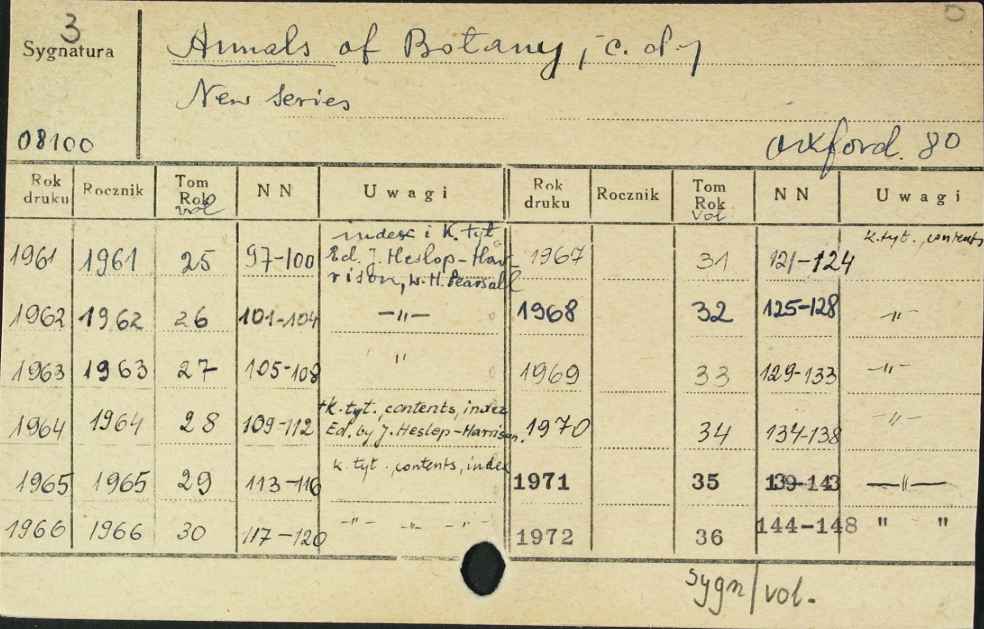 3
Sygnatura
Annals of Botany, c. d.
New series
08100
Oxford. 80
Rok druku Rocznik Tom Rok vol NN Uwagi Rok druku Rocznik Tom Rok vol NN Uwagi
1961 1961 25 97-100 index i k. tyt Ed. J. Heslop-Harrison, W. H. Pearsall 1967 31 121-124 k. tyt., contents
1962 1962 26 101-104 -"- 1968 32 125-128 -"-
1963 1963 27 105-108 " 1969 33 129-133 -"-
1964 1964 28 109-112 +k. tyt., contents, index Ed. by J. Heslop-Harrison. 1970 34 134-138 -"-
1965 1965 29 113-116 k. tyt., contents, index 1971 35 139-143 -"-
1966 1966 30 117-120 -"- -"- -"- 1972 36 144-148 " "
Sygn/vol.